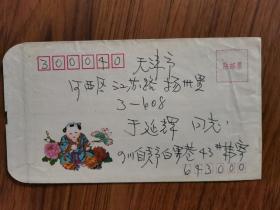 300040
天津市
贴邮票
河西区江苏路扬州里
3-608
于延辉 同志
四川自贡市白果巷43#
643000